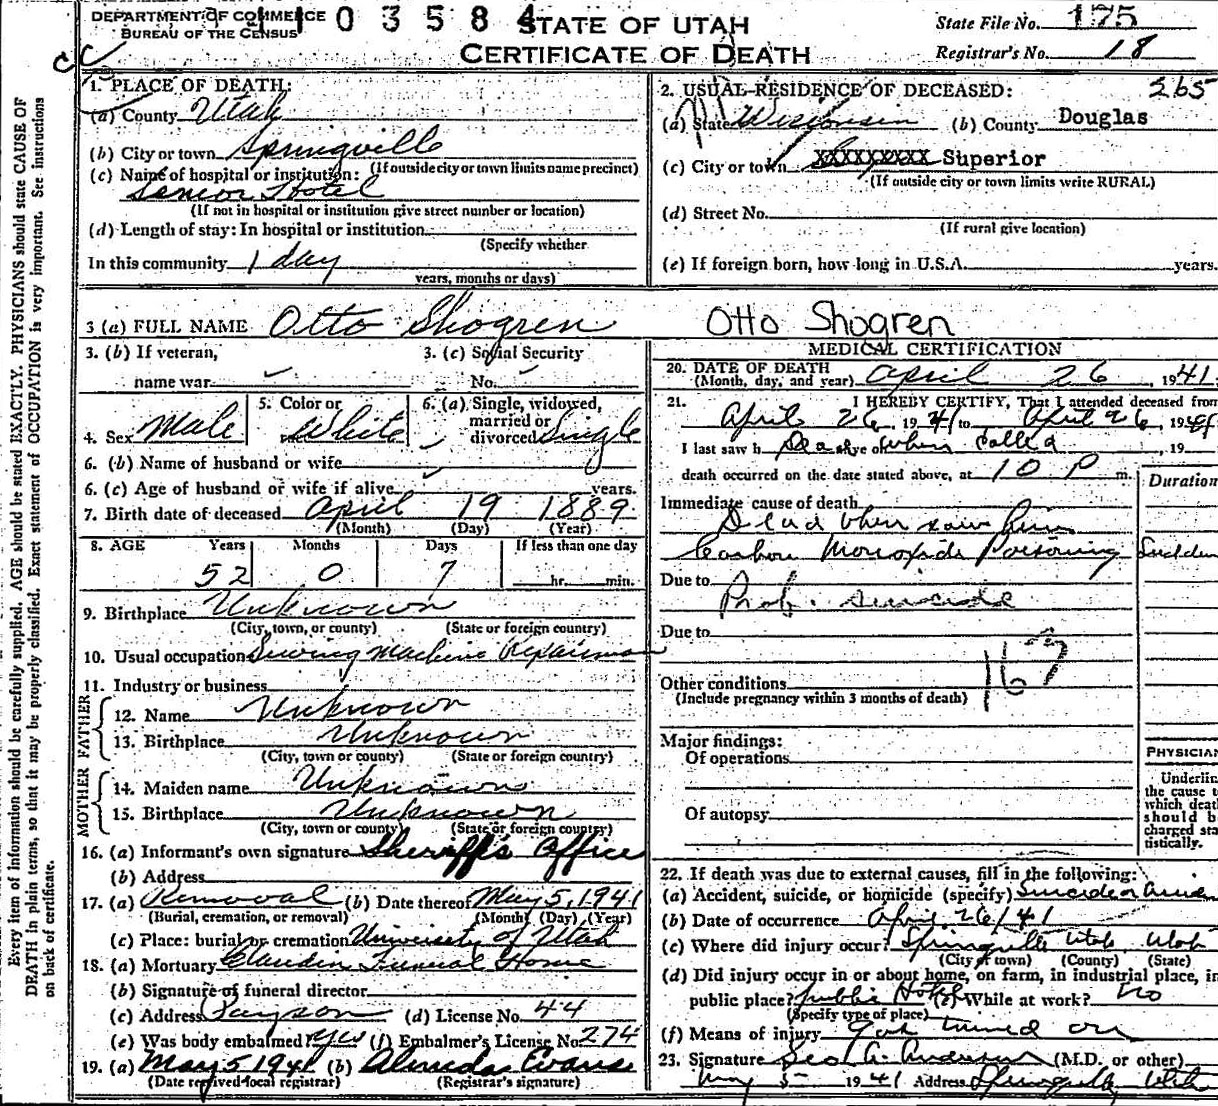 DEPARTMENT OF COMMERCE
BUREAU OF THE CENSUS
03584
STATE OF UTAH
CERTIFICATE OF DEATH
State File No. 175
Registrar's No. 18
Every item of information should be carefully supplied. AGE should be stated EXACTLY. PHYSICIANS should state CAUSE OF
DEATH in plain terms, so that it may be properly classified. Exact statement of OCCUPATION is very important. See instructions
on back of certificate.
1. PLACE OF DEATH:
(a) County Utah
(b) City or town Springville
(If outside city or town limits name precinct)
(c) Name of hospital or institution:
Senior Hotel
(If not in hospital or institution give street number or location)
(d) Length of stay: In hospital or institution
(Specify whether
In this community 1 day
years, months or days)
2. USUAL RESIDENCE OF DECEASED: 265
(a) State Wisconsin (b) County Douglas
(c) City or town XXXXXXXXX Superior
(If outside city or town limits write RURAL)
(d) Street No.
(If rural give location)
(e) If foreign born, how long in U.S.A. years.
3 (a) FULL NAME Otto Shogren Otto Shogren
3. (b) If veteran,
name war
3. (c) Social Security
No.
4. Sex Male
5. Color or
race White
6. (a) Single, widowed,
married or
divorced Single
6. (b) Name of husband or wife
6. (c) Age of husband or wife if alive years.
7. Birth date of deceased April 19 1889
(Month) (Day) (Year)
8. AGE Years Months Days If less than one day
52 0 7 hr. min.
9. Birthplace Unknown
(City, town, or county) (State or foreign country)
10. Usual occupation Sewing Machine Repairman
11. Industry or business
FATHER
12. Name Unknown
13. Birthplace Unknown
(City, town or county) (State or foreign country)
MOTHER
14. Maiden name Unknown
15. Birthplace Unknown
(City, town or county) (State or foreign country)
16. (a) Informant's own signature Sheriff's Office
(b) Address
17. (a) Removal (b) Date thereof May 5, 1941
(Burial, cremation, or removal) (Month) (Day) (Year)
(c) Place: burial or cremation University of Utah
18. (a) Mortuary Claudin Funeral Home
(b) Signature of funeral director
(c) Address Payson (d) License No. 44
(e) Was body embalmed? Yes (f) Embalmer's License No. 274
19. (a) May 5 1941 (b) Almeda Evans
(Date received local registrar) (Registrar's signature)
MEDICAL CERTIFICATION
20. DATE OF DEATH
(Month, day, and year) April 26, 1941.
21. I HEREBY CERTIFY, That I attended deceased from
April 26, 1941 to April 26, 1941
I last saw h Dead alive on when called, 19
death occurred on the date stated above, at 10 P m.
Duration
Immediate cause of death
Dead when saw him
Carbon Monoxide Poisoning Sudden
Due to Prob. suicide
Due to
167
Other conditions
(Include pregnancy within 3 months of death)
Major findings:
Of operations
Of autopsy
PHYSICIAN
Underlin
the cause t
which deat
should b
charged sta
tistically.
22. If death was due to external causes, fill in the following:
(a) Accident, suicide, or homicide (specify) Suicide
(b) Date of occurrence April 26/41
(c) Where did injury occur? Springville Utah Utah
(City or town) (County) (State)
(d) Did injury occur in or about home, on farm, in industrial place, in
public place? public Hotel (e) While at work? no
(Specify type of place)
(f) Means of injury Gas turned on
23. Signature Geo A. Anderson (M.D. or other)
May 5 1941 Address Springville, Utah